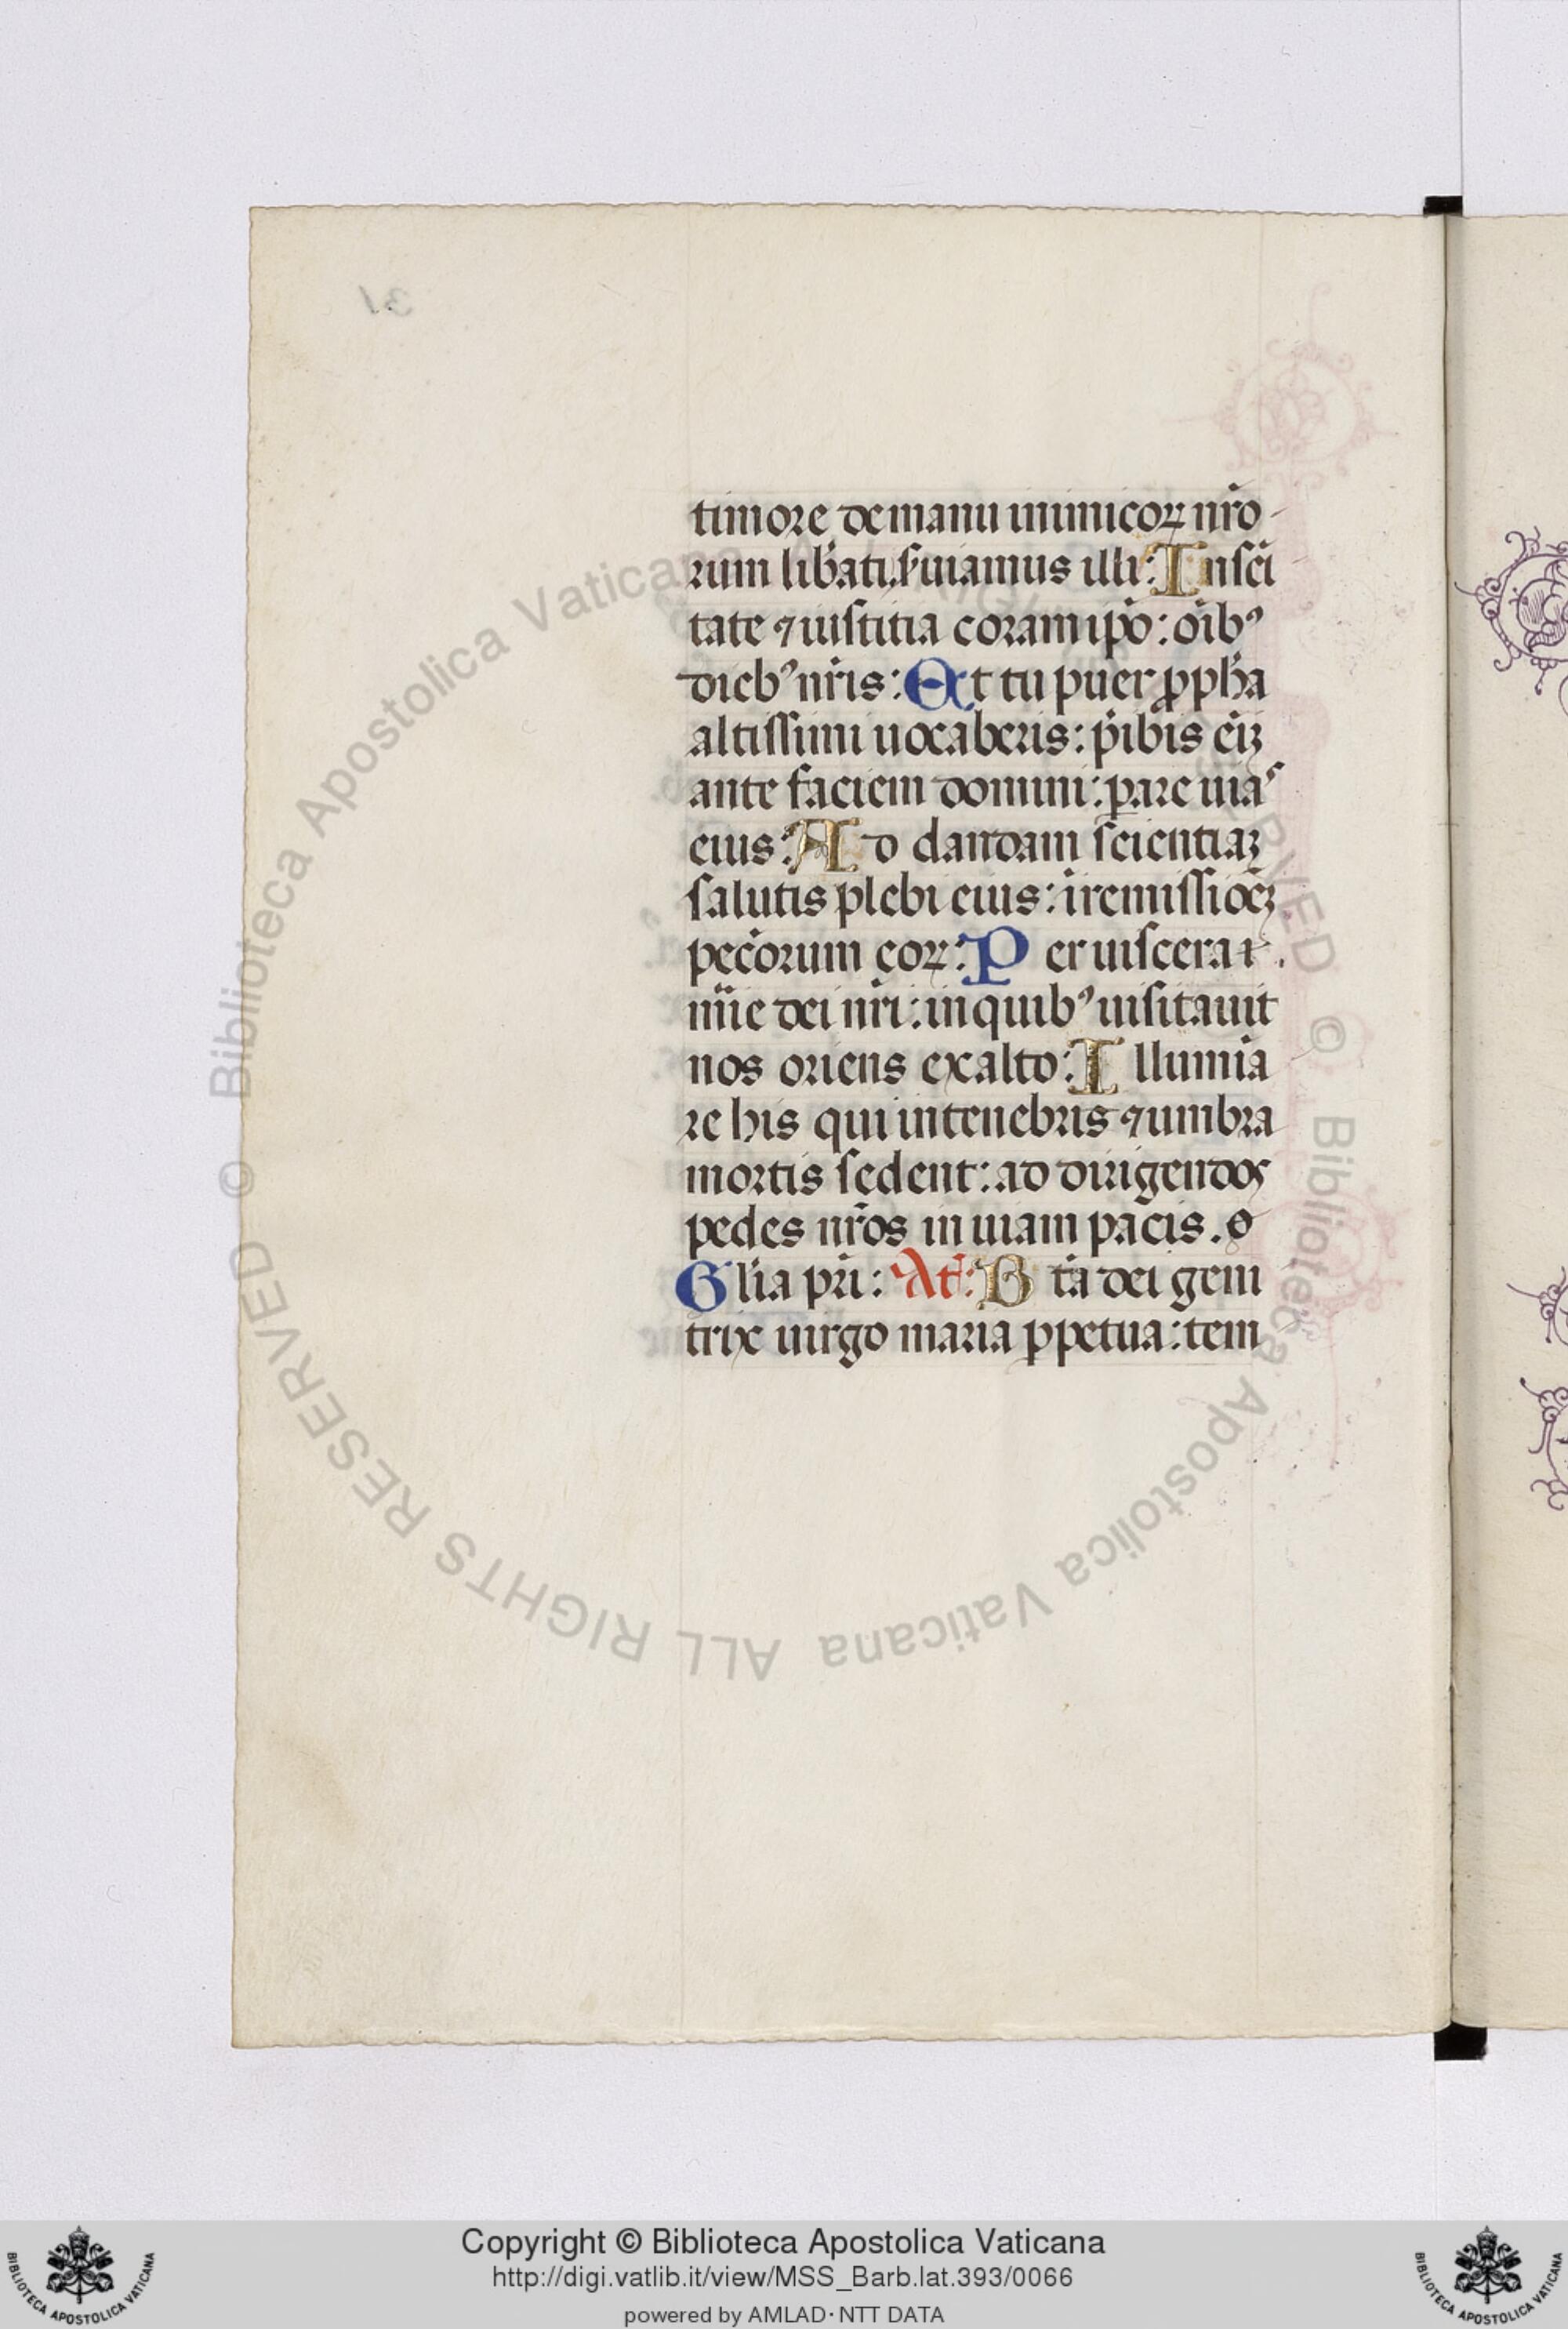 timore de manu inimicoꝝ nr̄o
rum lib̄ati, ẜuiamus illi: In sc̄i
tate ⁊ iustitia coram ip̄o: oībꝰ
diebꝰ nr̄is: Et tu puer ꝓph̄a
altissimi uocaberis: p̄ibis eīꝫ
ante faciem domini: ꝑare uias
eius: Ad dandam scientiaꝫ
salutis plebi eius: ī remissiōeꝫ
pec̄orum eoꝝ: Per uiscera i
mīe dei nr̄i: in quibꝰ uisitauit
nos oriens ex alto: Illumīa
re his qui in tenebris ⁊ umbra
mortis sedent: ad dirigendos
pedes nr̄os in uiam pacis.
Gl̄ia pr̄i: An̄t: Bt̄a dei geni
trix uirgo maria ꝑpetua: tem
31
© Biblioteca Apostolica Vaticana ALL RIGHTS RESERVED
© Biblioteca Apostolica Vaticana ALL RIGHTS RESERVED
Copyright © Biblioteca Apostolica Vaticana
http://digi.vatlib.it/view/MSS_Barb.lat.393/0066
powered by AMLAD·NTT DATA
BIBLIOTECA APOSTOLICA VATICANA
BIBLIOTECA APOSTOLICA VATICANA